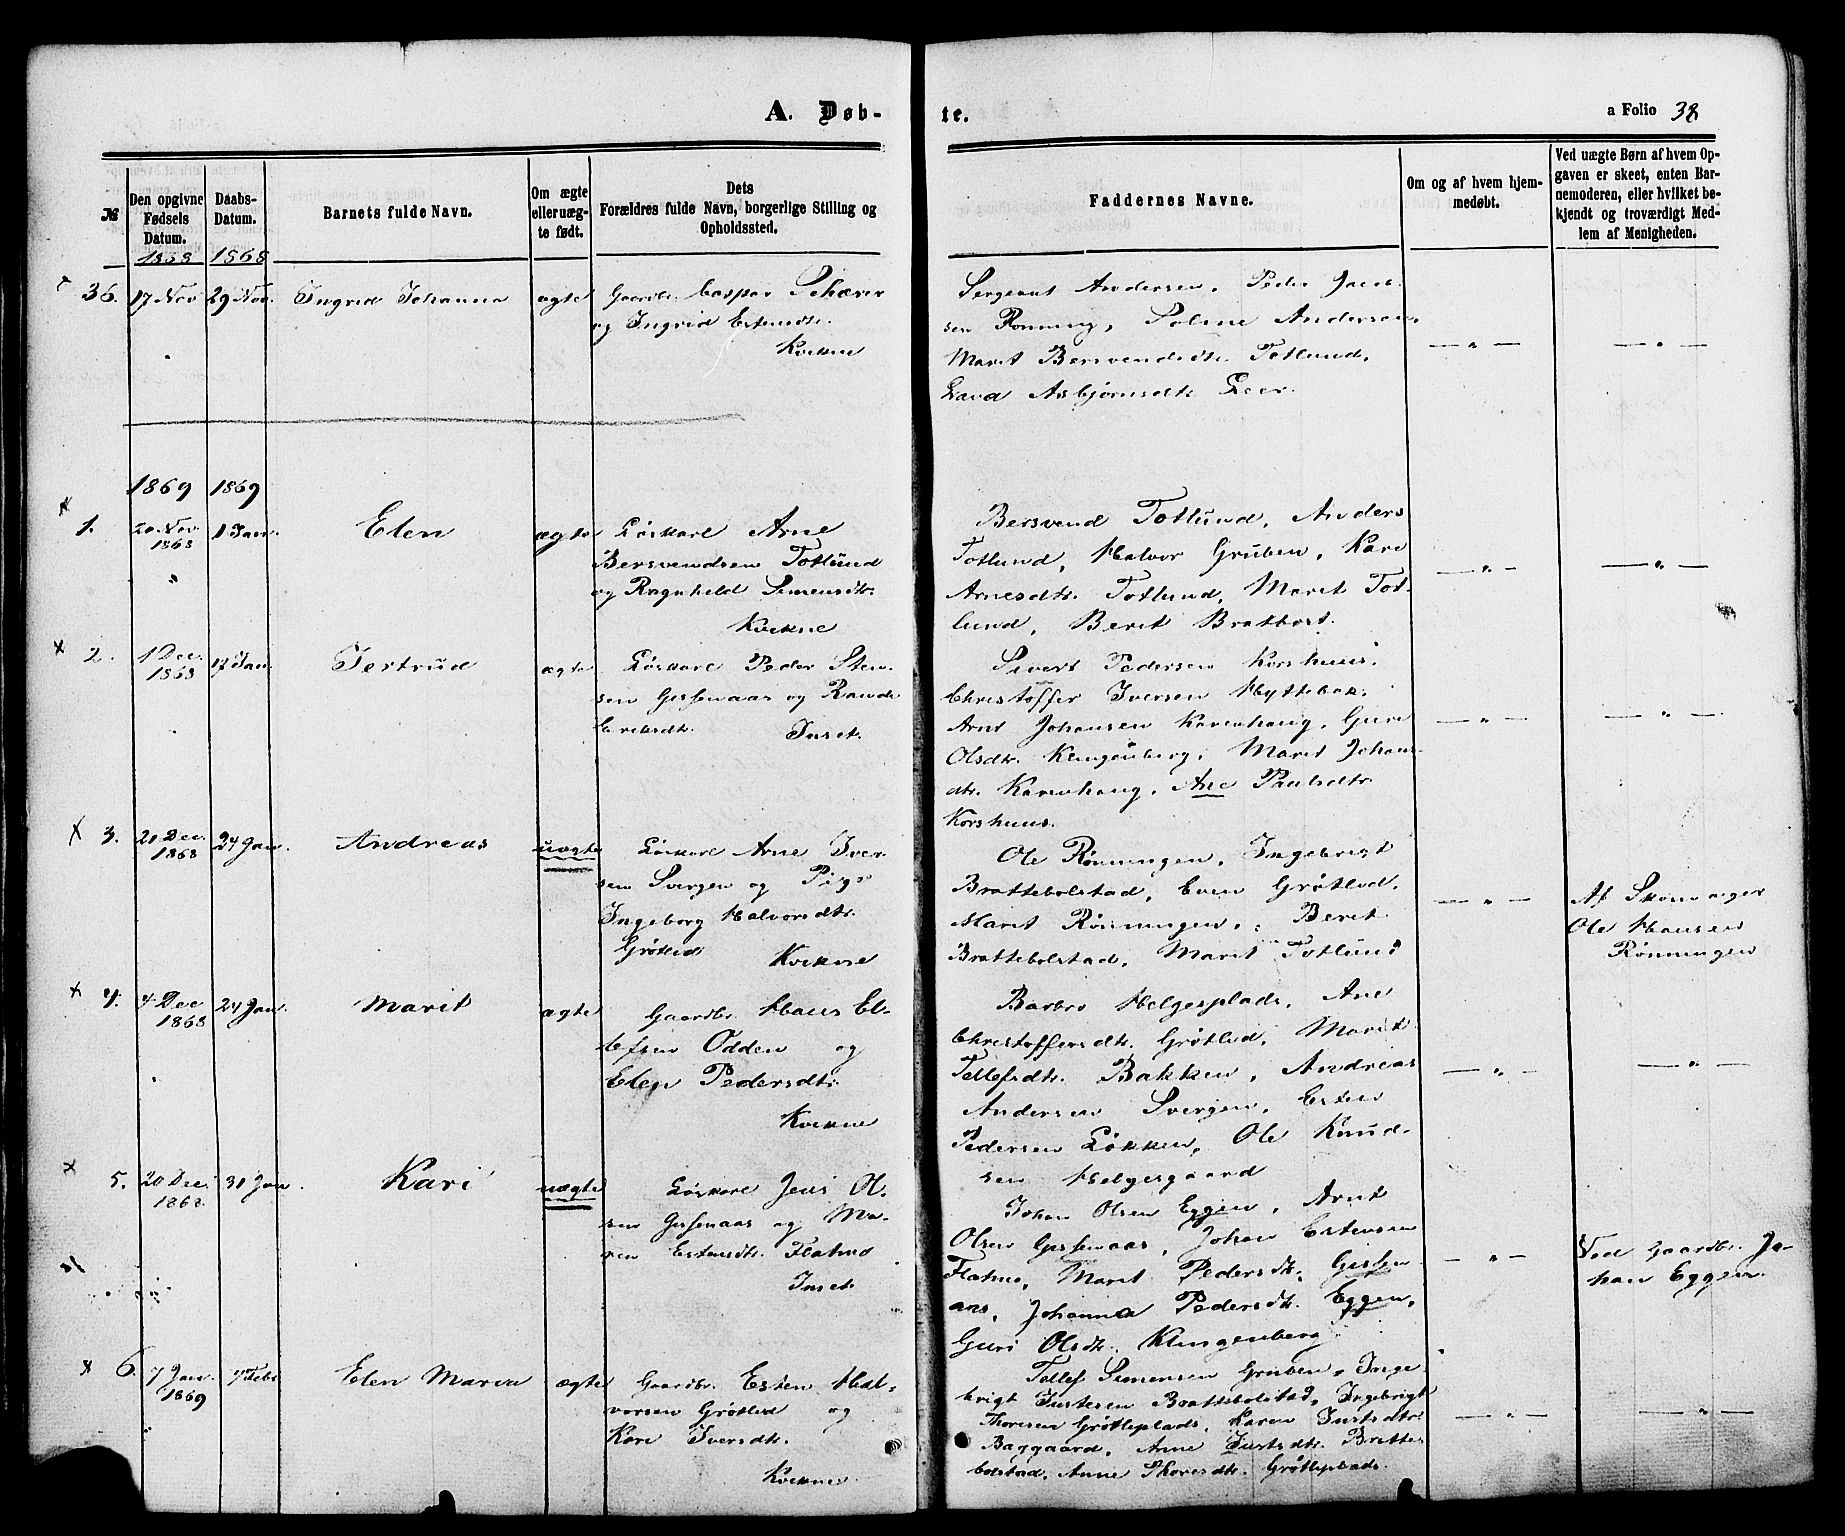 A. Døb-
te.
a Folio 38
№
Den opgivne Fødsels Datum.
Daabs-Datum.
Barnets fulde Navn.
Om ægte eller uæg-te født.
Dets
Forældres fulde Navn, borgerlige Stilling og
Opholdssted.
Faddernes Navne.
Om og af hvem hjem-
medøbt.
Ved uægte Børn af hvem Op-
gaven er skeet, enten Bar-
nemoderen, eller hvilket be-
kjendt og troværdigt Med-
lem af Menigheden.
1868 1868
36. 17 Nov 29 Nov. Ingrid Johanna ægte
Gaardbr. Caspar Schærer
og Ingrid Estensdtr.
Kvikne
Sergeant Andersen, Peder Jen-
sen Rønning, Andersen,
Marit Bersvendsdtr. Totlund,
Asbjørnsdtr. Leer.
— " — — " —
1869 1869
1. 20 Nov. 1868 1 Jan. Elen ægte
Løskarl Arne
Bersvendsen Totlund
og Ragnhild Simensdtr.
Kvikne
Bersvend Totlund, Anders
Totlund, Halvor Gruben, Kari
Arnesdtr. Totlund, Marit Tot-
lund, Berit Brattost.
— " — — " —
2. 1 Dec. 1868 17 Jan. Jertrud ægte
Løskarl Peder Sten-
sen Gissenaas og Randi
Eriksdtr. Inset.
Sivert Pedersen Korshuus.
Christoffer Iversen Hyttebak.
Arnt Johansen Kavenhaug, Guri
Olsdtr. Klingenberg, Marit Johans-
dtr. Kavenhaug, Ane Paulsdtr.
Korshuus.
— " — — " —
3. 21 Dec. 1868 24 Jan. Andreas uægte
Løskarl Arne Iver-
sen Svergen og Pige
Ingeborg Halvorsdtr.
Grøtlid Kvikne
Ole Rønningen, Ingebrigt
Brattebolstad, Even Grøtlid,
Marit Rønningen, Berit
Brattebolstad, Marit Totlund
— " —
Af Skomager
Ole Hansen
Rønningen
4. 4 Dec 1868 24 Jan. Marit ægte
Gaardbr. Hans El-
efsen Odden og
Elen Pedersdtr.
Kvikne
Barbro Helgesplads, Ane
Christoffersdtr. Grøtlid, Marit
Tellefsdtr. Bakken, Andreas
Andersen Svergen, Esten
Pedersen Løkken, Ole Knud-
sen Helgesgaard
— " — — " —
5. 20 Dec. 1868. 31 Jan. Kari uægte
Løskarl Jens Ol-
sen Gissenaas og Ma-
ren Estensdtr. Flatmo
Inset.
Johan Olsen Eggen, Arnt
Olsen Gissenaas, Johan Estensen
Flatmo, Marit Pedersdtr. Gissen-
aas, Johanna Pedersdtr. Eggen,
Guri Olsdtr. Klingenberg
— " —
Ved Gaardbr. Jo-
han Eggen
6. 7 Jan. 1869 7 Febr Elen Maria ægte
Gaardbr. Esten Hal-
vorsen Grøtlid og
Kari Iversdtr.
Kvikne
Tellef Simensen Gruben, Inge-
brigt Justesen Brattebolstad, Ingebrigt
Thoresen Grøtliplads, Karen Justsdtr.
Baggaard, Anne Justsdtr. Bratte-
bolstad, Anne Thoresdtr. Grøtliplads.
— " — — " —